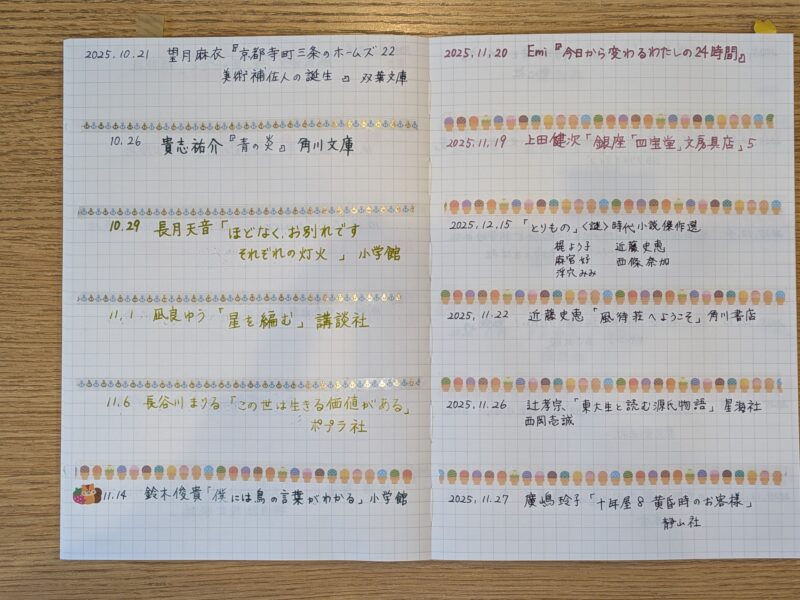 2025.10.21 望月麻衣『京都寺町三条のホームズ22
美術補佐人の誕生』 双葉文庫
10.26 貴志祐介『青の炎』角川文庫
10.29 長月天音「ほどなく、お別れです
それぞれの灯火」 小学館
11.1 凪良ゆう「星を編む」講談社
11.6 長谷川まりる「この世は生きる価値がある」
ポプラ社
11.14 鈴木俊貴「僕には鳥の言葉がわかる」小学館
2025.11.20 Emi『今日から変わるわたしの24時間』
2025.11.19 上田健次「銀座「四宝堂」文房具店」5
2025.12.15 「とりもの」〈謎〉時代小説傑作選
梶よう子 近藤史恵
麻宮好 西條奈加
浮穴みみ
2025.11.22 近藤史恵「風待荘へようこそ」角川書店
2025.11.26 辻孝宗、「東大生と読む源氏物語」星海社
西岡壱誠
2025.11.27 廣嶋玲子「十年屋8 黄昏時のお客様」
静山社